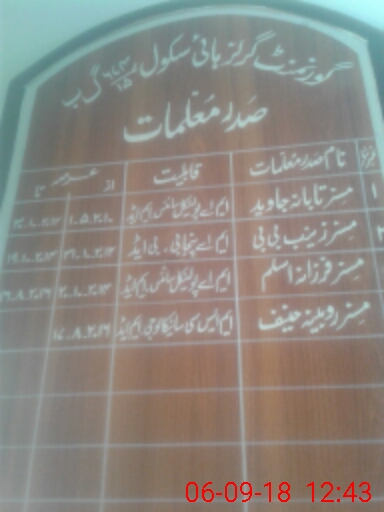 گورنمنٹ گرلز ہائی سکول گ ب
صدر معلمات
نمبر نام صدر معلمات قابلیت عرصہ
از تا
۱ مسز تابانہ جاوید ایم اے پولیٹیکل سائنس ایم ایڈ
۲ مسز زینب بی بی ایم اے پنجابی۔ بی ایڈ
مسز فرزانہ اسلم ایم اے پولیٹیکل سائنس ایم ایڈ
مسز روبینہ حنیف ایم ایس سی سائیکالوجی ایم ایڈ
06-09-18 12:43